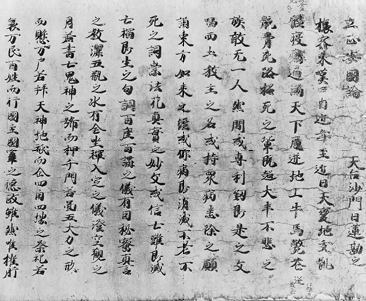 立正安國論 天台沙門日蓮勘之
旅客來嘆曰自近年至近日天變地夭飢
饉疫癘遍滿天下廣迸地上牛馬斃巷
骸骨充路招死之輩既超大半不悲之
族敢无一人然間或專利劍即是之文
唱西土教主之名或持衆病悉除之願
誦東方如來之經或仰病即消滅不老不
死之詞崇法花真實之妙文或信七難即滅
七福即生之句調百座百講之儀有因秘密真言
之教灑五瓶之水有全坐禪入定之儀澄空觀之
月若書七鬼神之號而押千門若圖五大力之形
而懸万戶若拜天神地祇而企四角四堺之祭祀若
哀万民百姓而行國主國宰之德政雖然唯摧肝